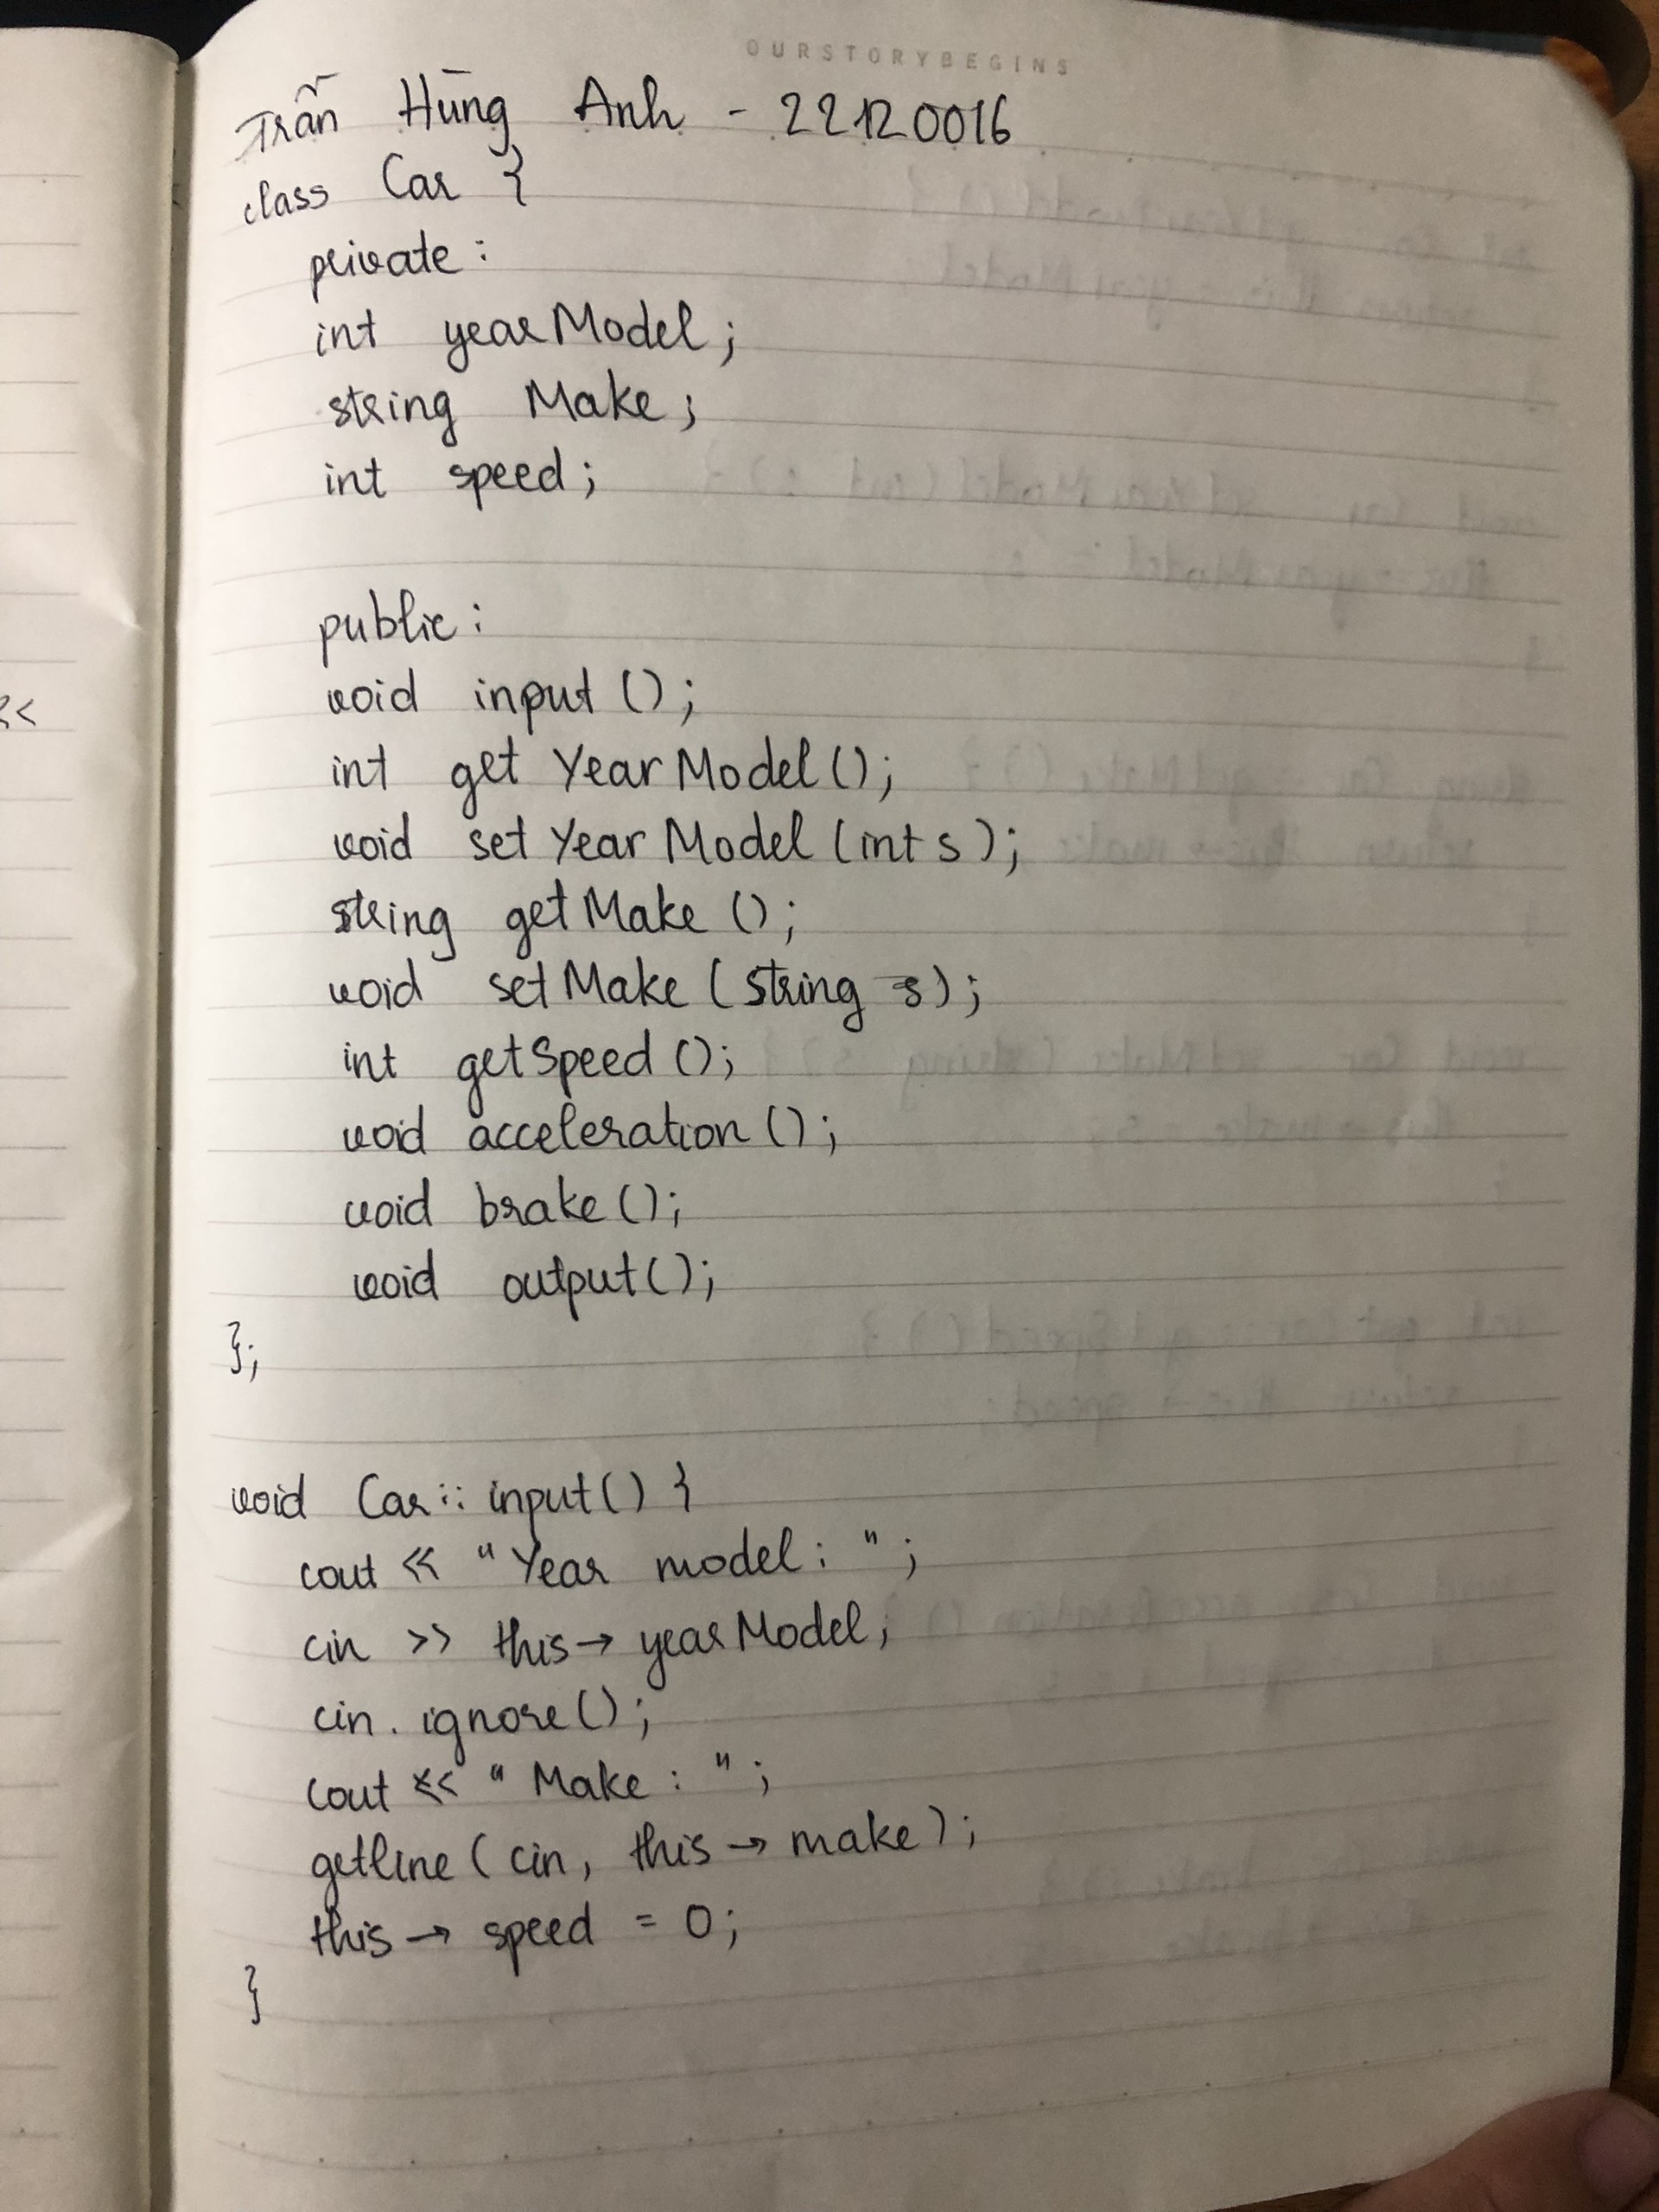 OURSTORYBEGINS
Trần Hùng Anh - 22120016
class Car {
private:
int yearModel;
string Make;
int speed;
public:
void input();
int getYearModel();
void setYearModel(int s);
string getMake();
void setMake(string s);
int getSpeed();
void acceleration();
void brake();
void output();
};
void Car::input() {
cout << "Year model: ";
cin >> this→yearModel;
cin.ignore();
cout << "Make: ";
getline(cin, this→make);
this→speed = 0;
}